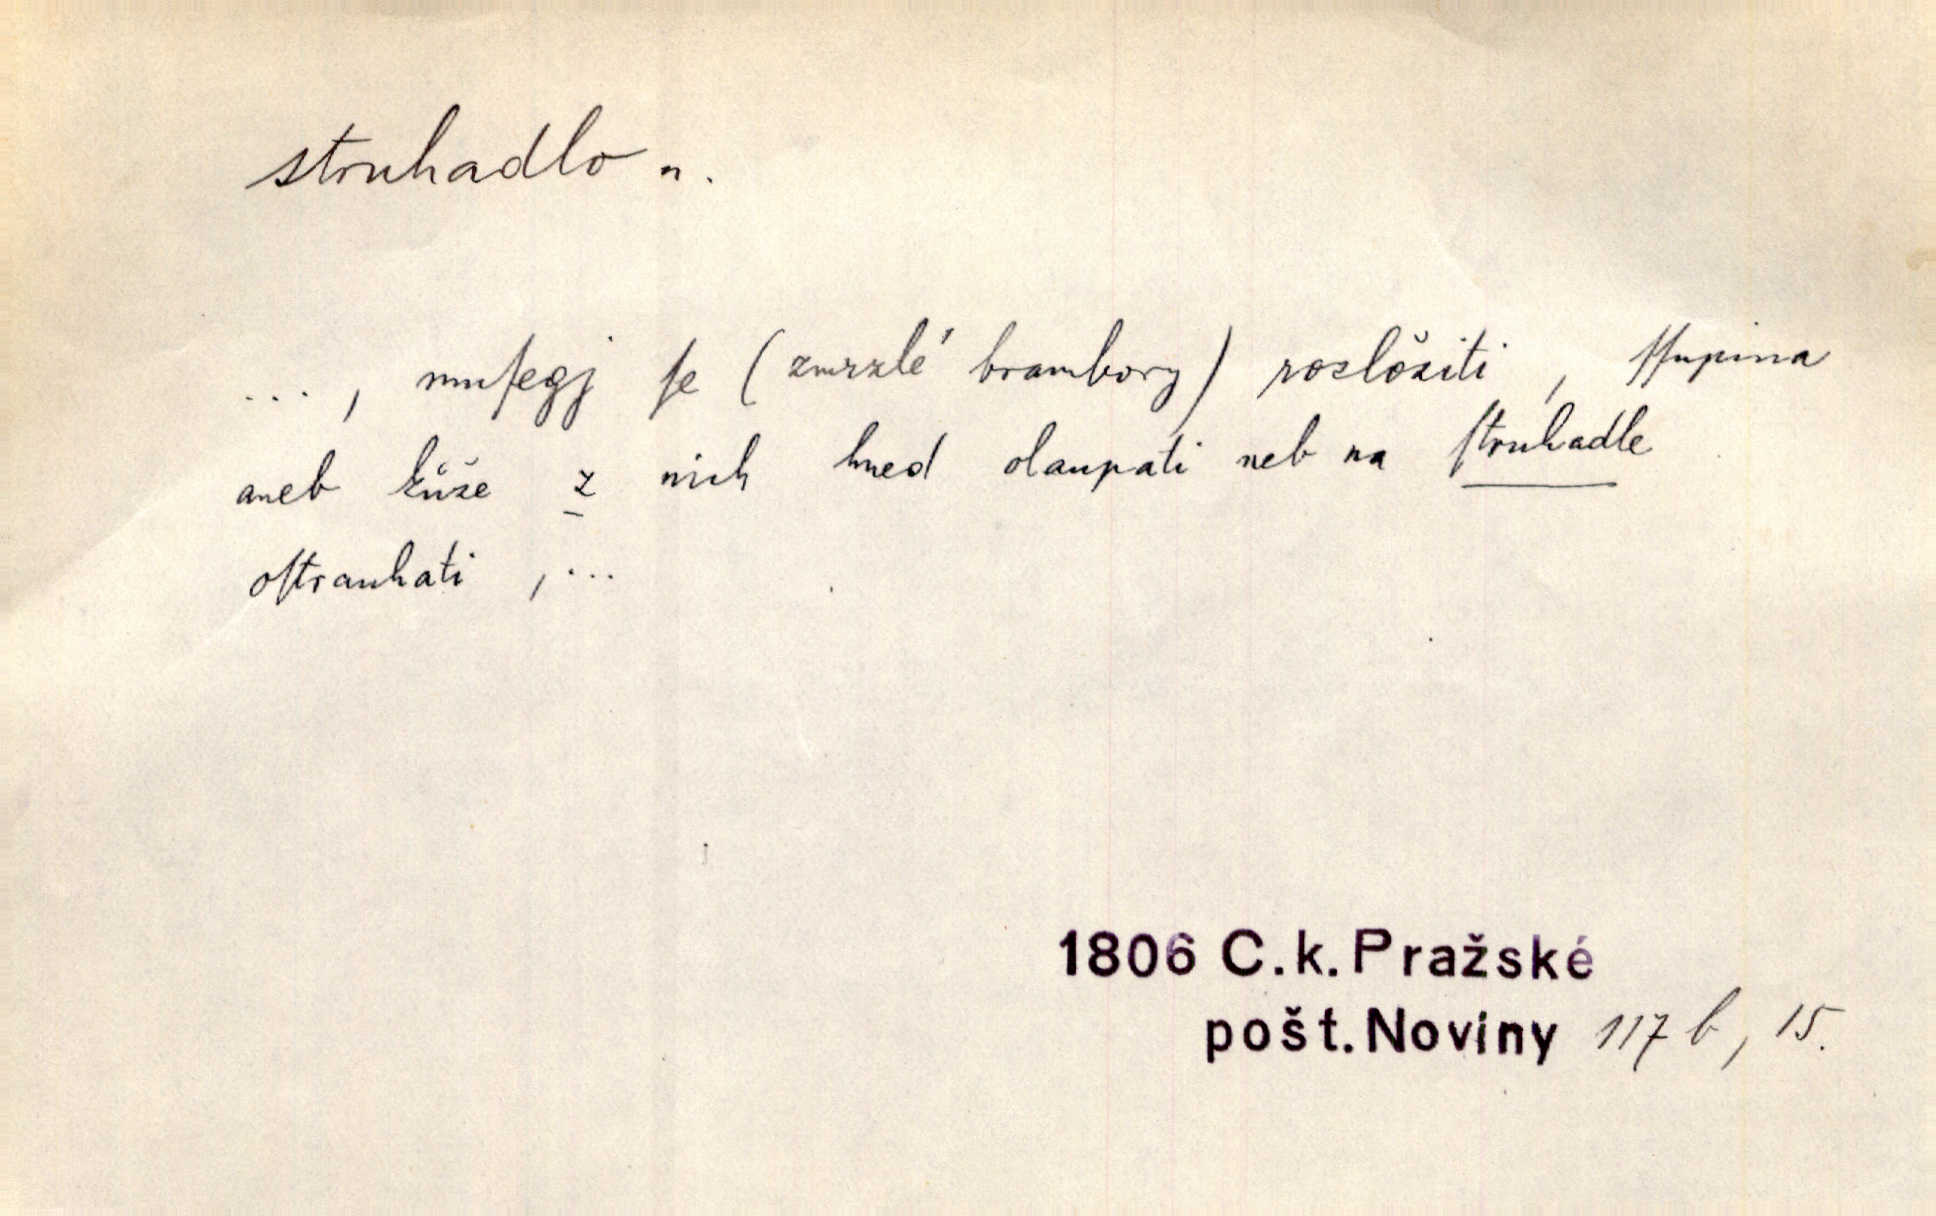 struhadlo n.
..., muſegj ſe (zmrzlé brambory) rozložiti, ſſupina
aneb kůže z nich hned olaupati neb na ſtruhadle
oſtrauhati, ...
1806 C.k. Pražské
pošt. Noviny 117 b, 15.